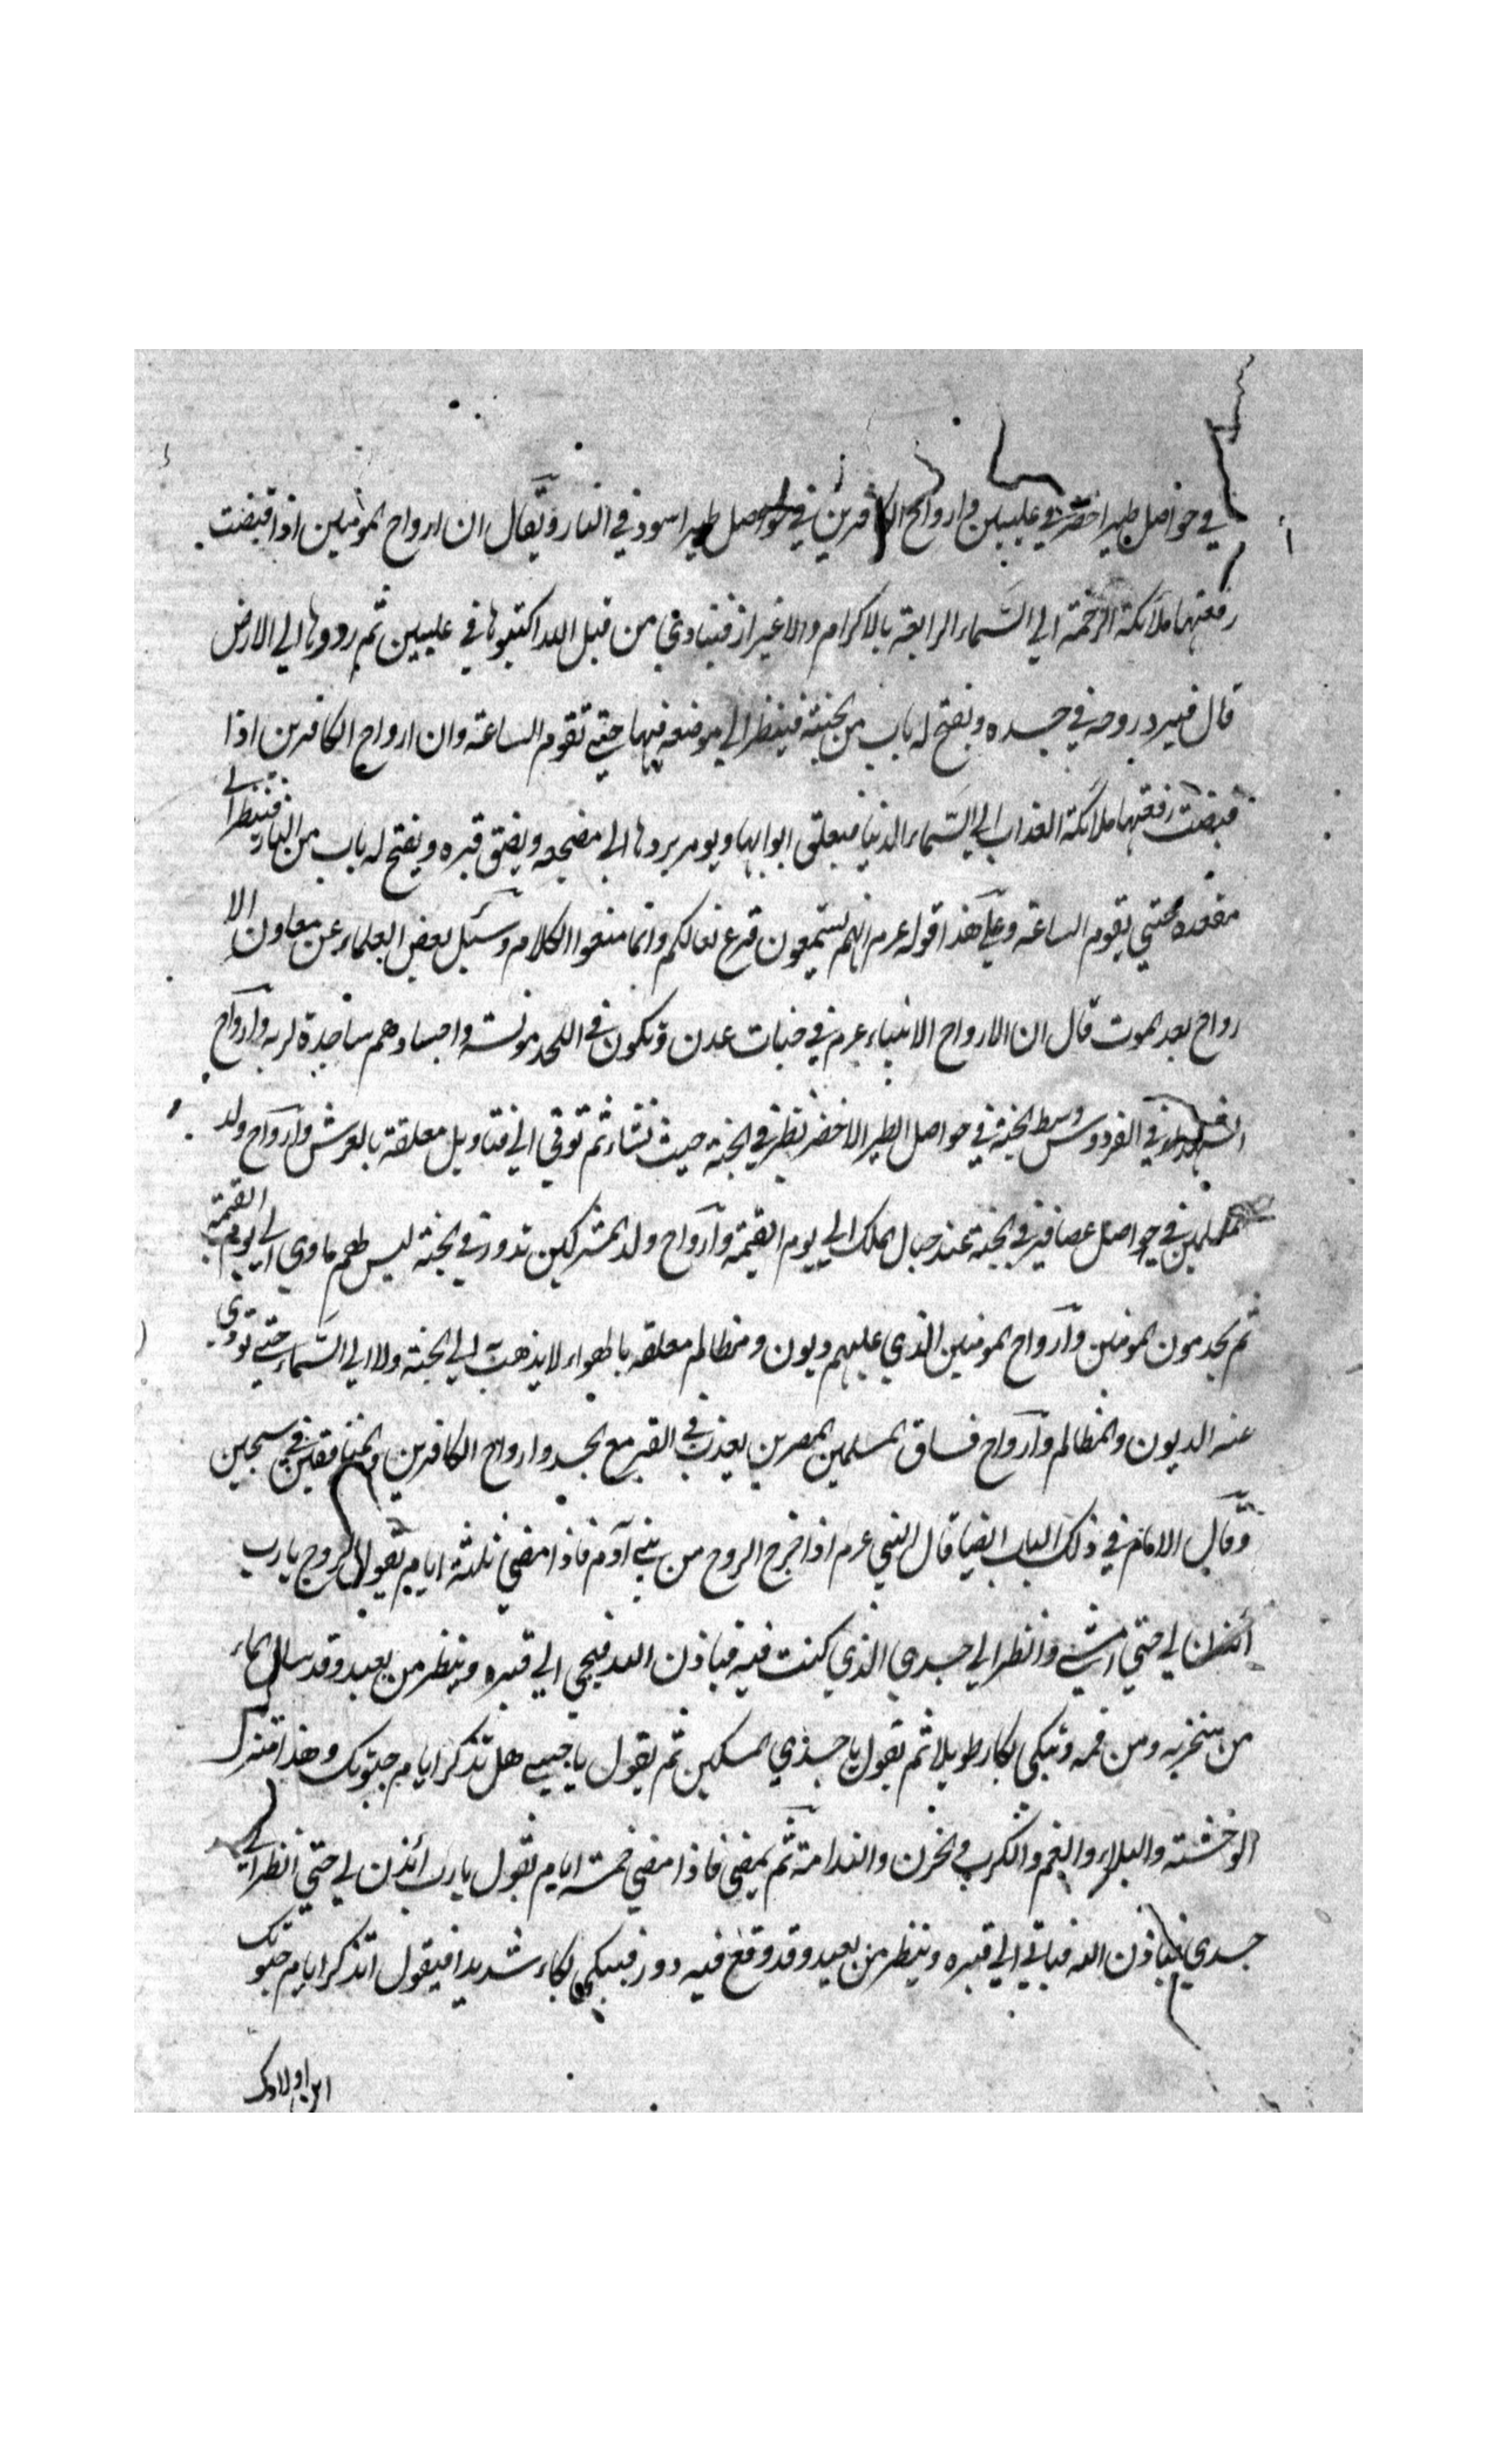 في حواصل طير اخضر في عليين وارواح الكافرين في حواصل طير اسود في النار ويقال ان ارواح المؤمنين اذا قبضت
رفعتها ملائكة الرحمة الي السماء الرابعة بالاكرام والاعزاز فينادي من قبل الله اكتبوها في عليين ثم ردوها الي الارض
قال فيرد روحه في جسده ويفتح له باب من الجنة فينظر الي موضعه فيها حتي تقوم الساعة وان ارواح الكافرين اذا
قبضت رفعتها ملائكة العذاب الي السماء الدنيا فيغلق ابوابها ويومر بردها الي مضجعه ويضيق قبره ويفتح له باب من النار فينظر الي
مقعده حتي يقوم الساعة وعلي هذا قوله عرم انهم يستمعون قرع نعالكم وانما منعوا الكلام وسئل بعض العلماء عن معاون الا
رواح بعد الموت قال ان الارواح الانبياء عرم في جنات عدن وتكون في اللحد مونسة واجسادهم ساجدة لربه وارواح
الشهداء في الفردوس وسط الجنة في حواصل الطير الاخضر تطير في الجنة حيث تشاء ثم توتي الي قناديل معلقة بالعرش وارواح ولد
المسلمين في حواصل عصافير في الجنة عند جبال المسك الي يوم القيمة وارواح ولد المشركين تدور في الجنة ليس لهم ماوي الي يوم القيمة
ثم يخدمون المومنين وارواح المومنين الذي عليهم ديون ومظالم معلقة بالهواء لا يذهب الي الجنة ولا الي السماء حتي تودي
عنه الديون والمظالم وارواح فساق المسلمين المصرين يعذب في القبر مع الجسد وارواح الكافرين والمنافقين في سجين
وقال الامام في ذلك الباب ايضا قال النبي عرم اذا خرج الروح من بني آدم فاذا مضي ثلثة ايام يقول الروح يا رب
ائذن لي حتي امشي وانظر الي جسدي الذي كنت فيه فياذن الله فيجي الي قبره وينظر من بعيد وقد سال الماء
من منخريه ومن فمه وتبكي بكاء طويلا ثم يقول يا جسدي المسكين ثم يقول يا حبيبي هل تذكر ايام حيوتك وهذا منزل
الوحشة والبلاء والغم والكرب والحزن والندامة ثم يمضي فاذا مضي خمسة ايام يقول يا رب ائذن لي حتي انظر الي
جسدي فياذن الله فياتي الي قبره وينظر من بعيد وقد وقع فيه دود فيبكي بكاء شديدا فيقول اتذكر ايام حيوتك
اين اولادك